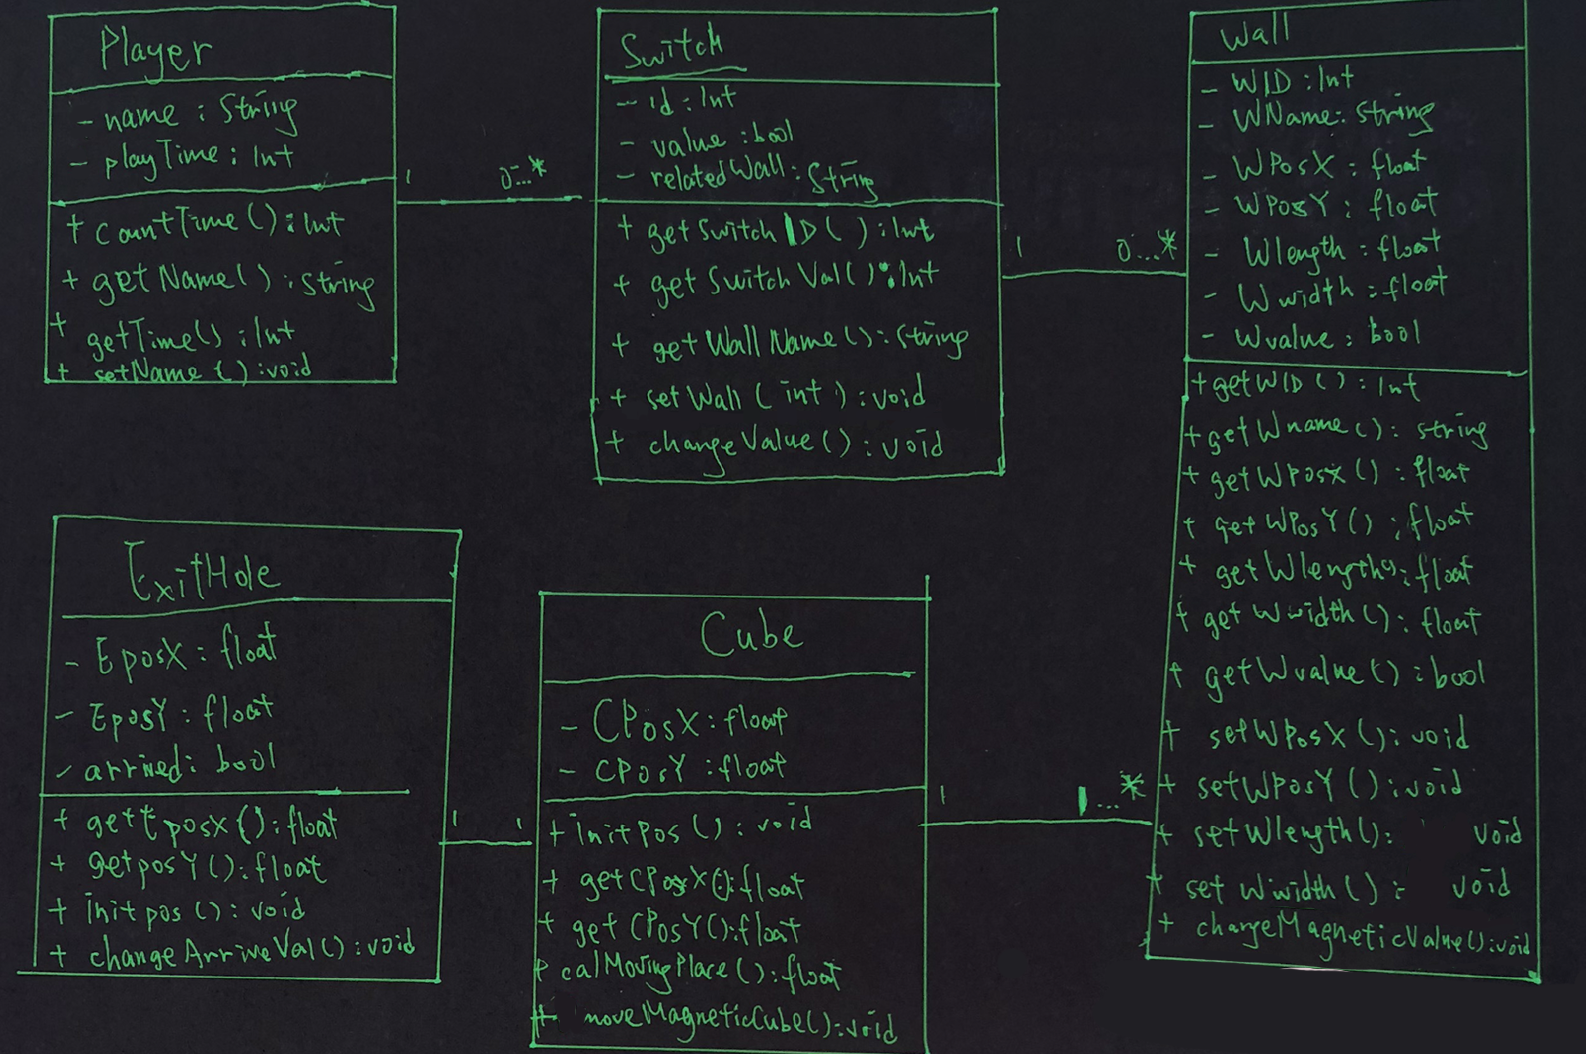 Player
- name : String
- playTime : Int
+ countTime ( ) : Int
+ getName ( ) : String
+ getTime ( ) : Int
+ setName ( ) : void
1
0...*
Switch
- id : Int
- value : bool
- relatedWall : String
+ getSwitchID ( ) : Int
+ getSwitchVal ( ) : Int
+ getWallName ( ) : String
+ setWall ( int ) : void
+ changeValue ( ) : void
1
0...*
Wall
- WID : Int
- WName : String
- WPosX : float
- WPosY : float
- Wlength : float
- Wwidth : float
- Wvalue : bool
+ getWID ( ) : Int
+ getWname ( ) : string
+ getWPosX ( ) : float
+ getWPosY ( ) : float
+ getWlength() : float
+ getWwidth ( ) : float
+ getWvalue ( ) : bool
+ setWPosX ( ) : void
+ setWPosY ( ) : void
+ setWlength ( ) : void
+ setWwidth ( ) : void
+ changeMagneticValue ( ) : void
ExitHole
- EposX : float
- EposY : float
- arrived : bool
+ getEposX ( ) : float
+ getposY ( ) : float
+ initpos ( ) : void
+ changeArriveVal ( ) : void
1
1
Cube
- CPosX : float
- CPosY : float
+ initPos ( ) : void
+ getCPosX ( ) : float
+ getCPosY ( ) : float
+ calMovingPlace ( ) : float
+ moveMagneticCube ( ) : void
1
1...*